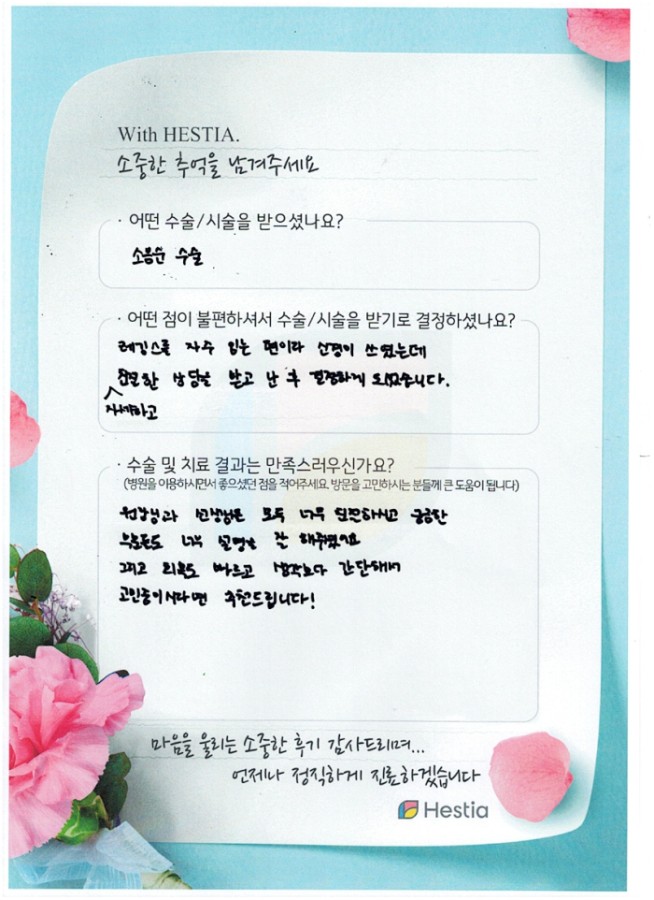 With HESTIA.
소중한 추억을 남겨주세요
· 어떤 수술/시술을 받으셨나요?
소음순 수술
· 어떤 점이 불편하셔서 수술/시술을 받기로 결정하셨나요?
레깅스를 자주 입는 편이라 신경이 쓰였는데
친절한 상담을 받고 난 후 결정하게 되었습니다.
자세하고
· 수술 및 치료 결과는 만족스러우신가요?
(병원을 이용하시면서 좋으셨던 점을 적어주세요. 방문을 고민하시는 분들께 큰 도움이 됩니다)
원장님과 선생님들 모두 너무 친절하시고 궁금한
부분도 너무 설명을 잘 해주셨어요
그리고 회복도 빠르고 생각보다 간단해서
고민중이시라면 추천드립니다!
마음을 울리는 소중한 후기 감사드리며...
언제나 정직하게 진료하겠습니다
Hestia